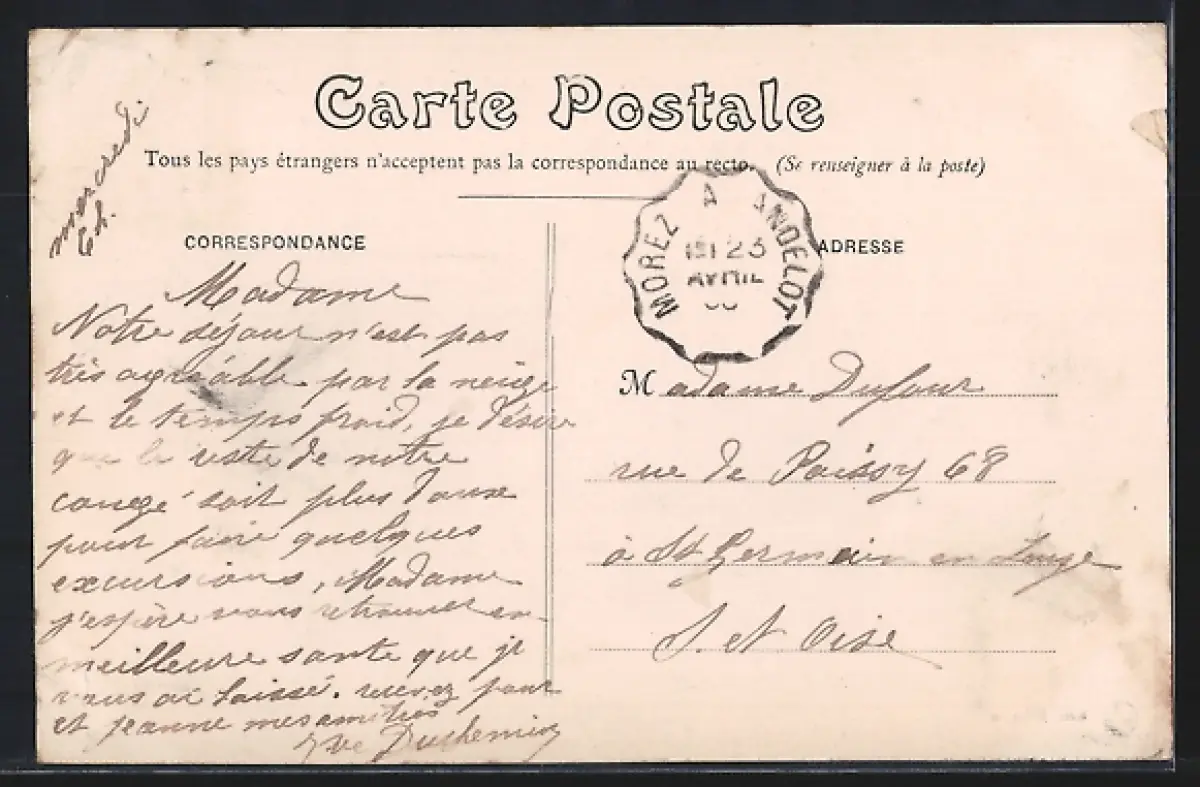 Carte Postale
Tous les pays étrangers n'acceptent pas la correspondance au recto. (Se renseigner à la poste)
mercredi
6 h.
CORRESPONDANCE
ADRESSE
MOREZ A ANDELOT
23
AVRIL
Madame
Notre séjour n'est pas
très agréable par la neige
et le temps froid, je désire
que le reste de notre
congé soit plus doux
pour faire quelques
excursions, Madame
j'espère vous retrouver en
meilleure santé que je
vous ai laissé. recevez pour
et Jeanne mes amitiés
Duchemin
Madame Dufour
rue de Poissy 68
à St Germain en Laye
S. et Oise